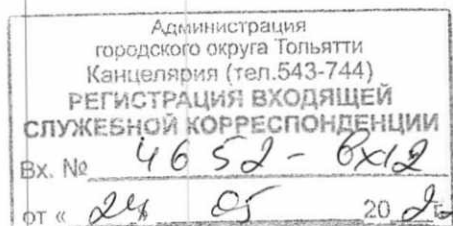 Администрация
городского округа Тольятти
Канцелярия (тел.543-744)
РЕГИСТРАЦИЯ ВХОДЯЩЕЙ
СЛУЖЕБНОЙ КОРРЕСПОНДЕНЦИИ
Вх. № 4652-вх12
от « 24 05 20 22 г.